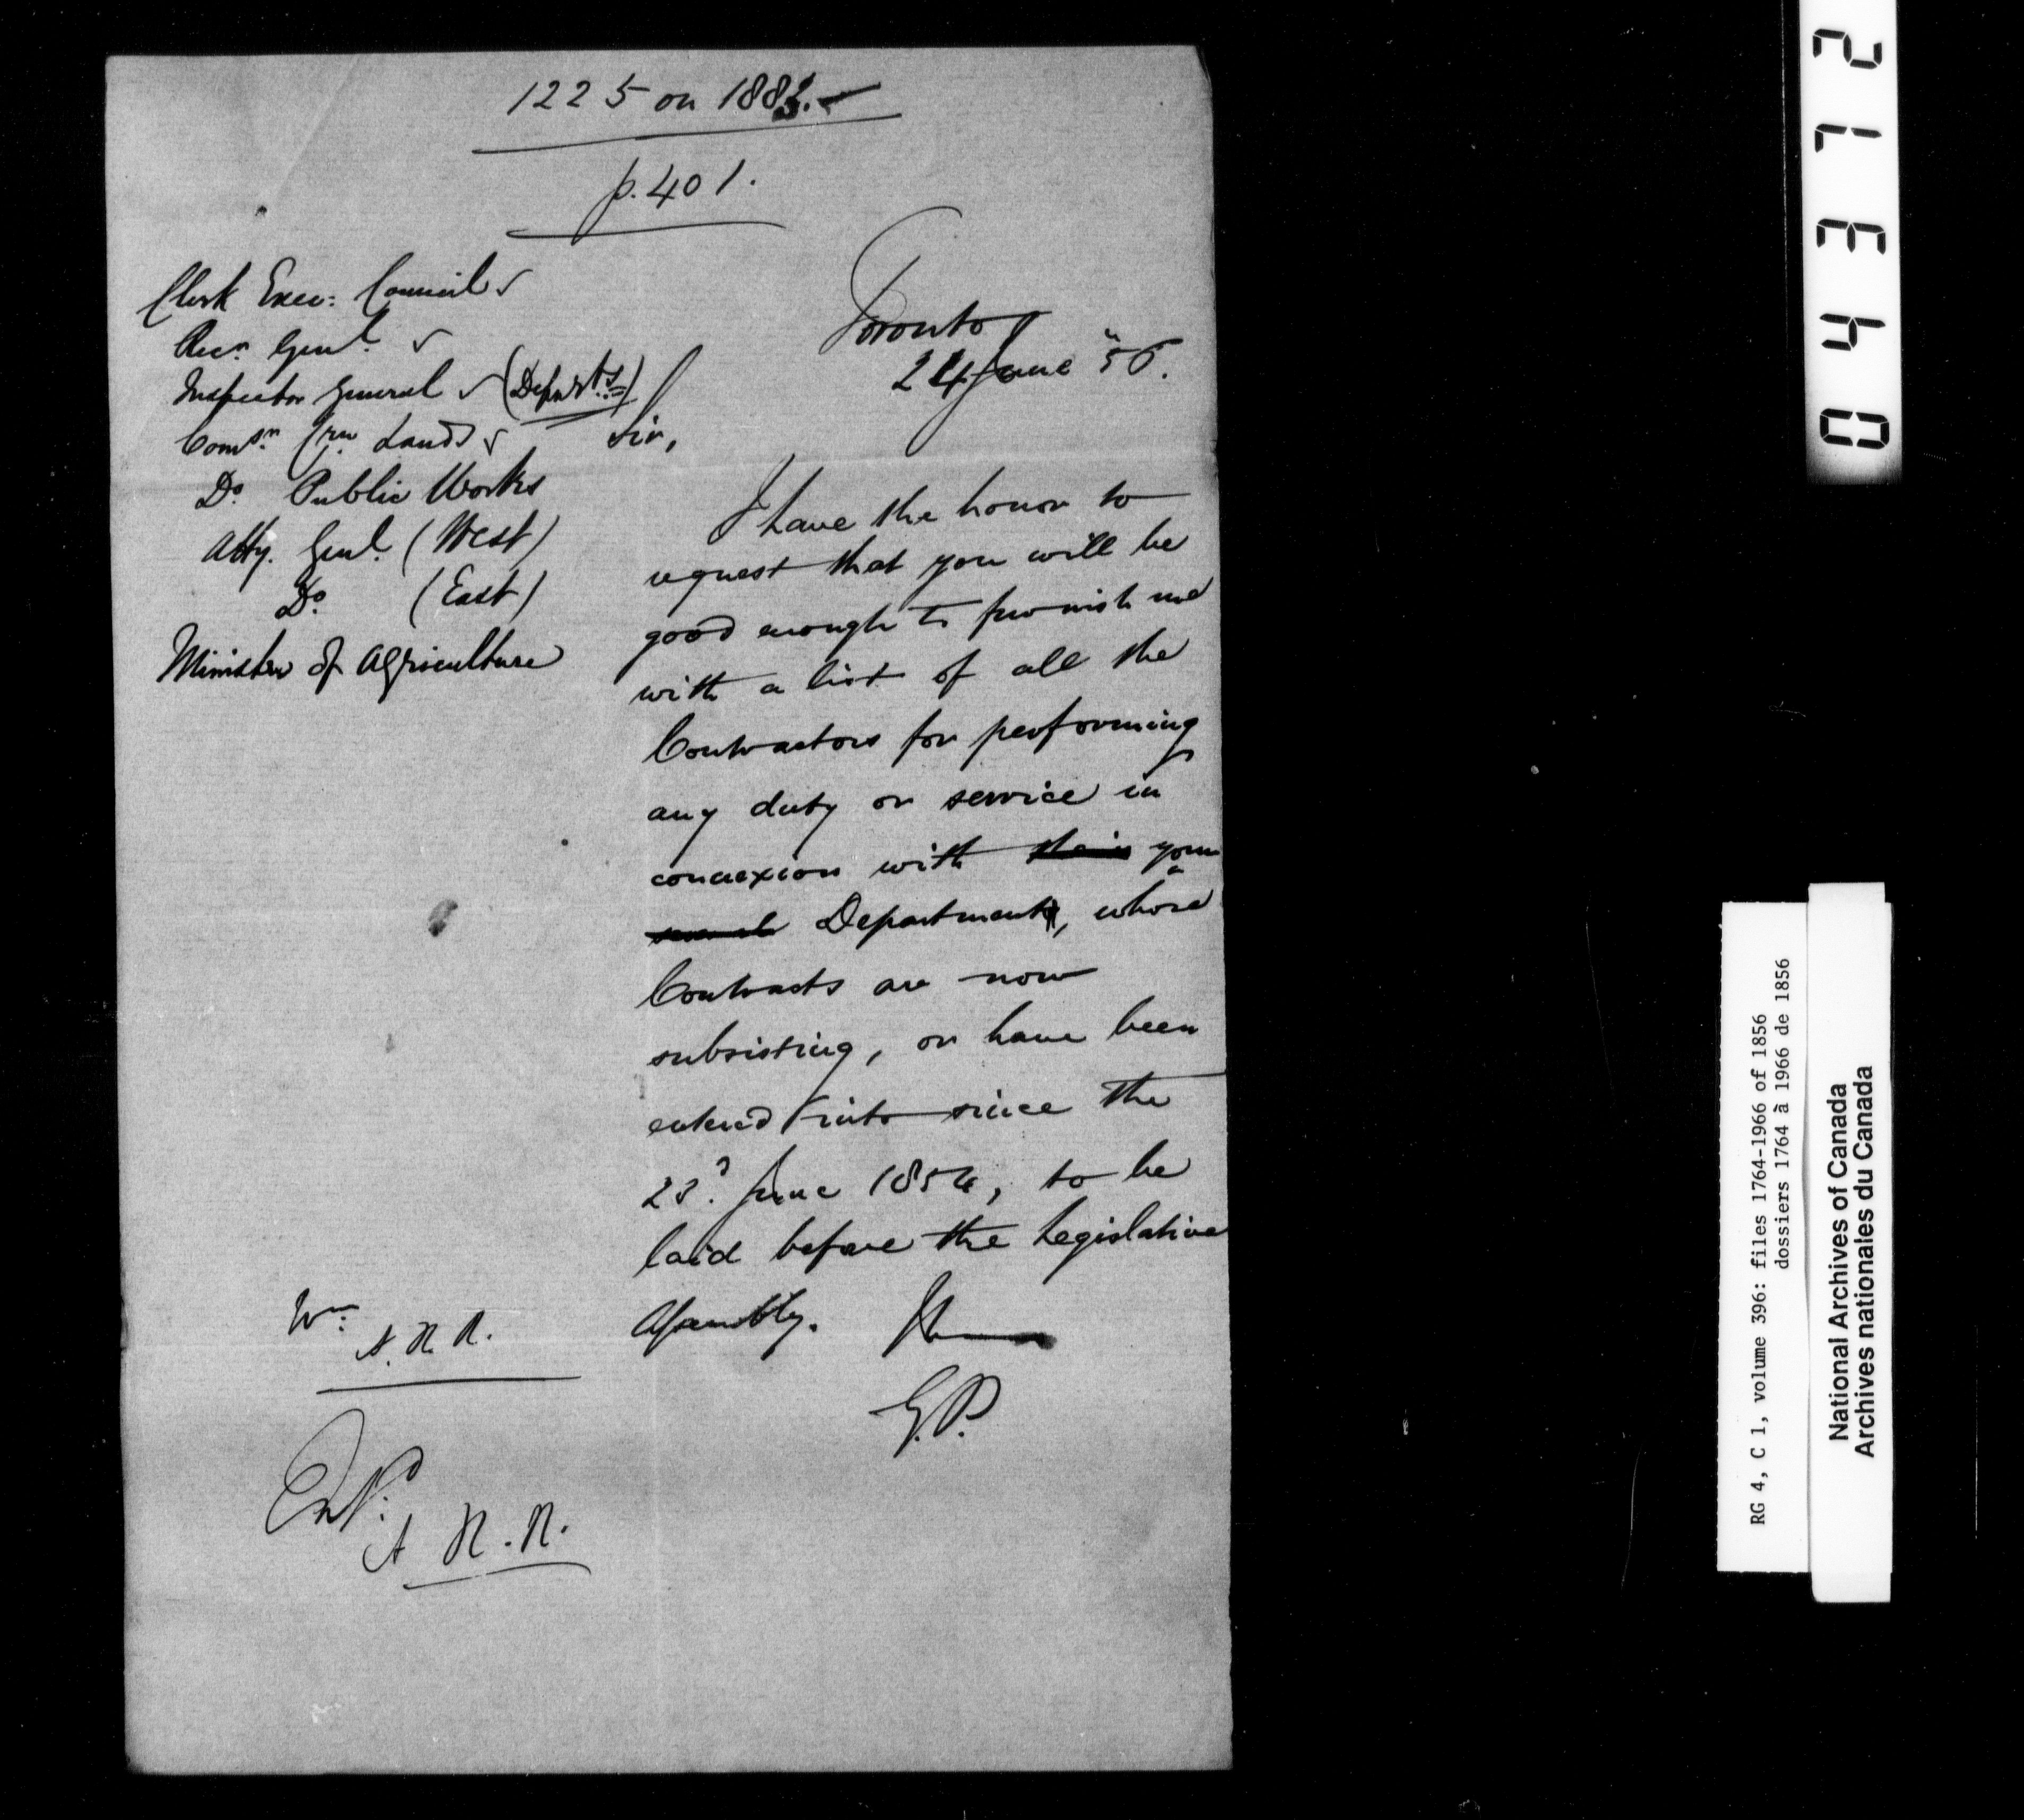 1225 on 1883.
p. 401.
Clerk Exec: Council ✓
Recr. Genl. ✓
Inspector General ✓ (Departs.)
Comsr. Crn. Lands ✓
Do. Public Works
Atty. Genl. (West)
Do. (East)
Minister of Agriculture
Toronto
24 June "56.
Sir,
I have the honor to
request that you will be
good enough to furnish me
with a list of all the
Contractors for performing
any duty or service in
connexion with their your
several Department, whose
Contracts are now
subsisting, or have been
entered into since the
23d. June 1854, to be
laid before the Legislative
Assembly.
G.P.
Wm:
A.R.R.
Entd:
A R.R.
04372
RG 4, C 1, volume 396: files 1764-1966 of 1856
dossiers 1764 à 1966 de 1856
National Archives of Canada
Archives nationales du Canada